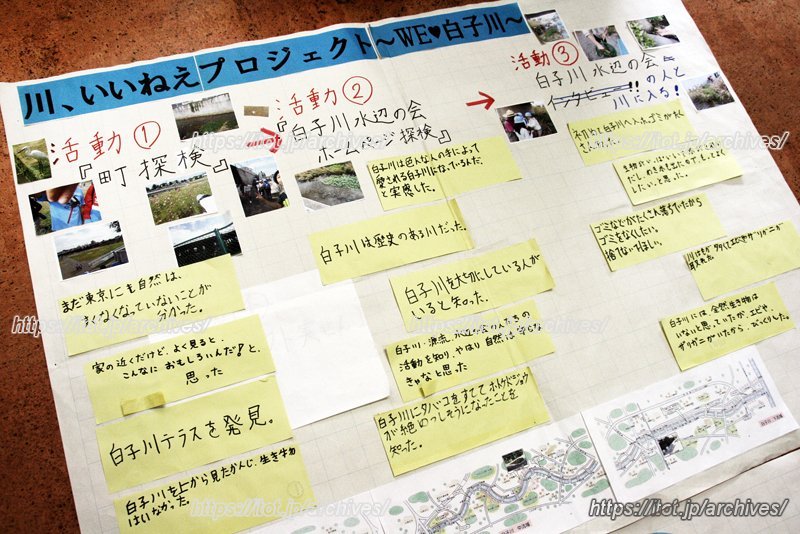 川、いいねえプロジェクト〜WE♥白子川〜
活動①
『町探検』
活動②
『白子川水辺の会
ホームページ探検』
活動③
白子川水辺の会
の人と
川に入る!
まだ東京にも自然は、
まくなくなっていないことが
分かった。
家の近くだけど、よく見ると、
こんなに おもしろいんだ!と、
思った
白子川テラスを発見。
白子川を上から見たかんじ、生き物
はいなかった。
白子川は色んな人の手によって
愛される白子川になっているんだ
と実感した。
白子川は歴史のある川だった。
白子川を大切にしている人が
いると知った。
白子川・源流
活動を知り、やはり自然は
きゃなと思った
白子川にタバコをすててホトケドジョウ
が絶めつしそうになったことを
知った。
ゴミなどがたくさん落ちていたから
ゴミをなくしたい。
捨てないでほしい。
白子川には、全然生き物は
いないと思っていたが、エビや、
ザリガニがいたから、びっくりした。
https://itot.jp/archives/
https://itot.jp/archives/
https://itot.jp/archives/
https://itot.jp/archives/
https://itot.jp/archives/
https://itot.jp/archives/
https://itot.jp/archives/
https://itot.jp/archives/